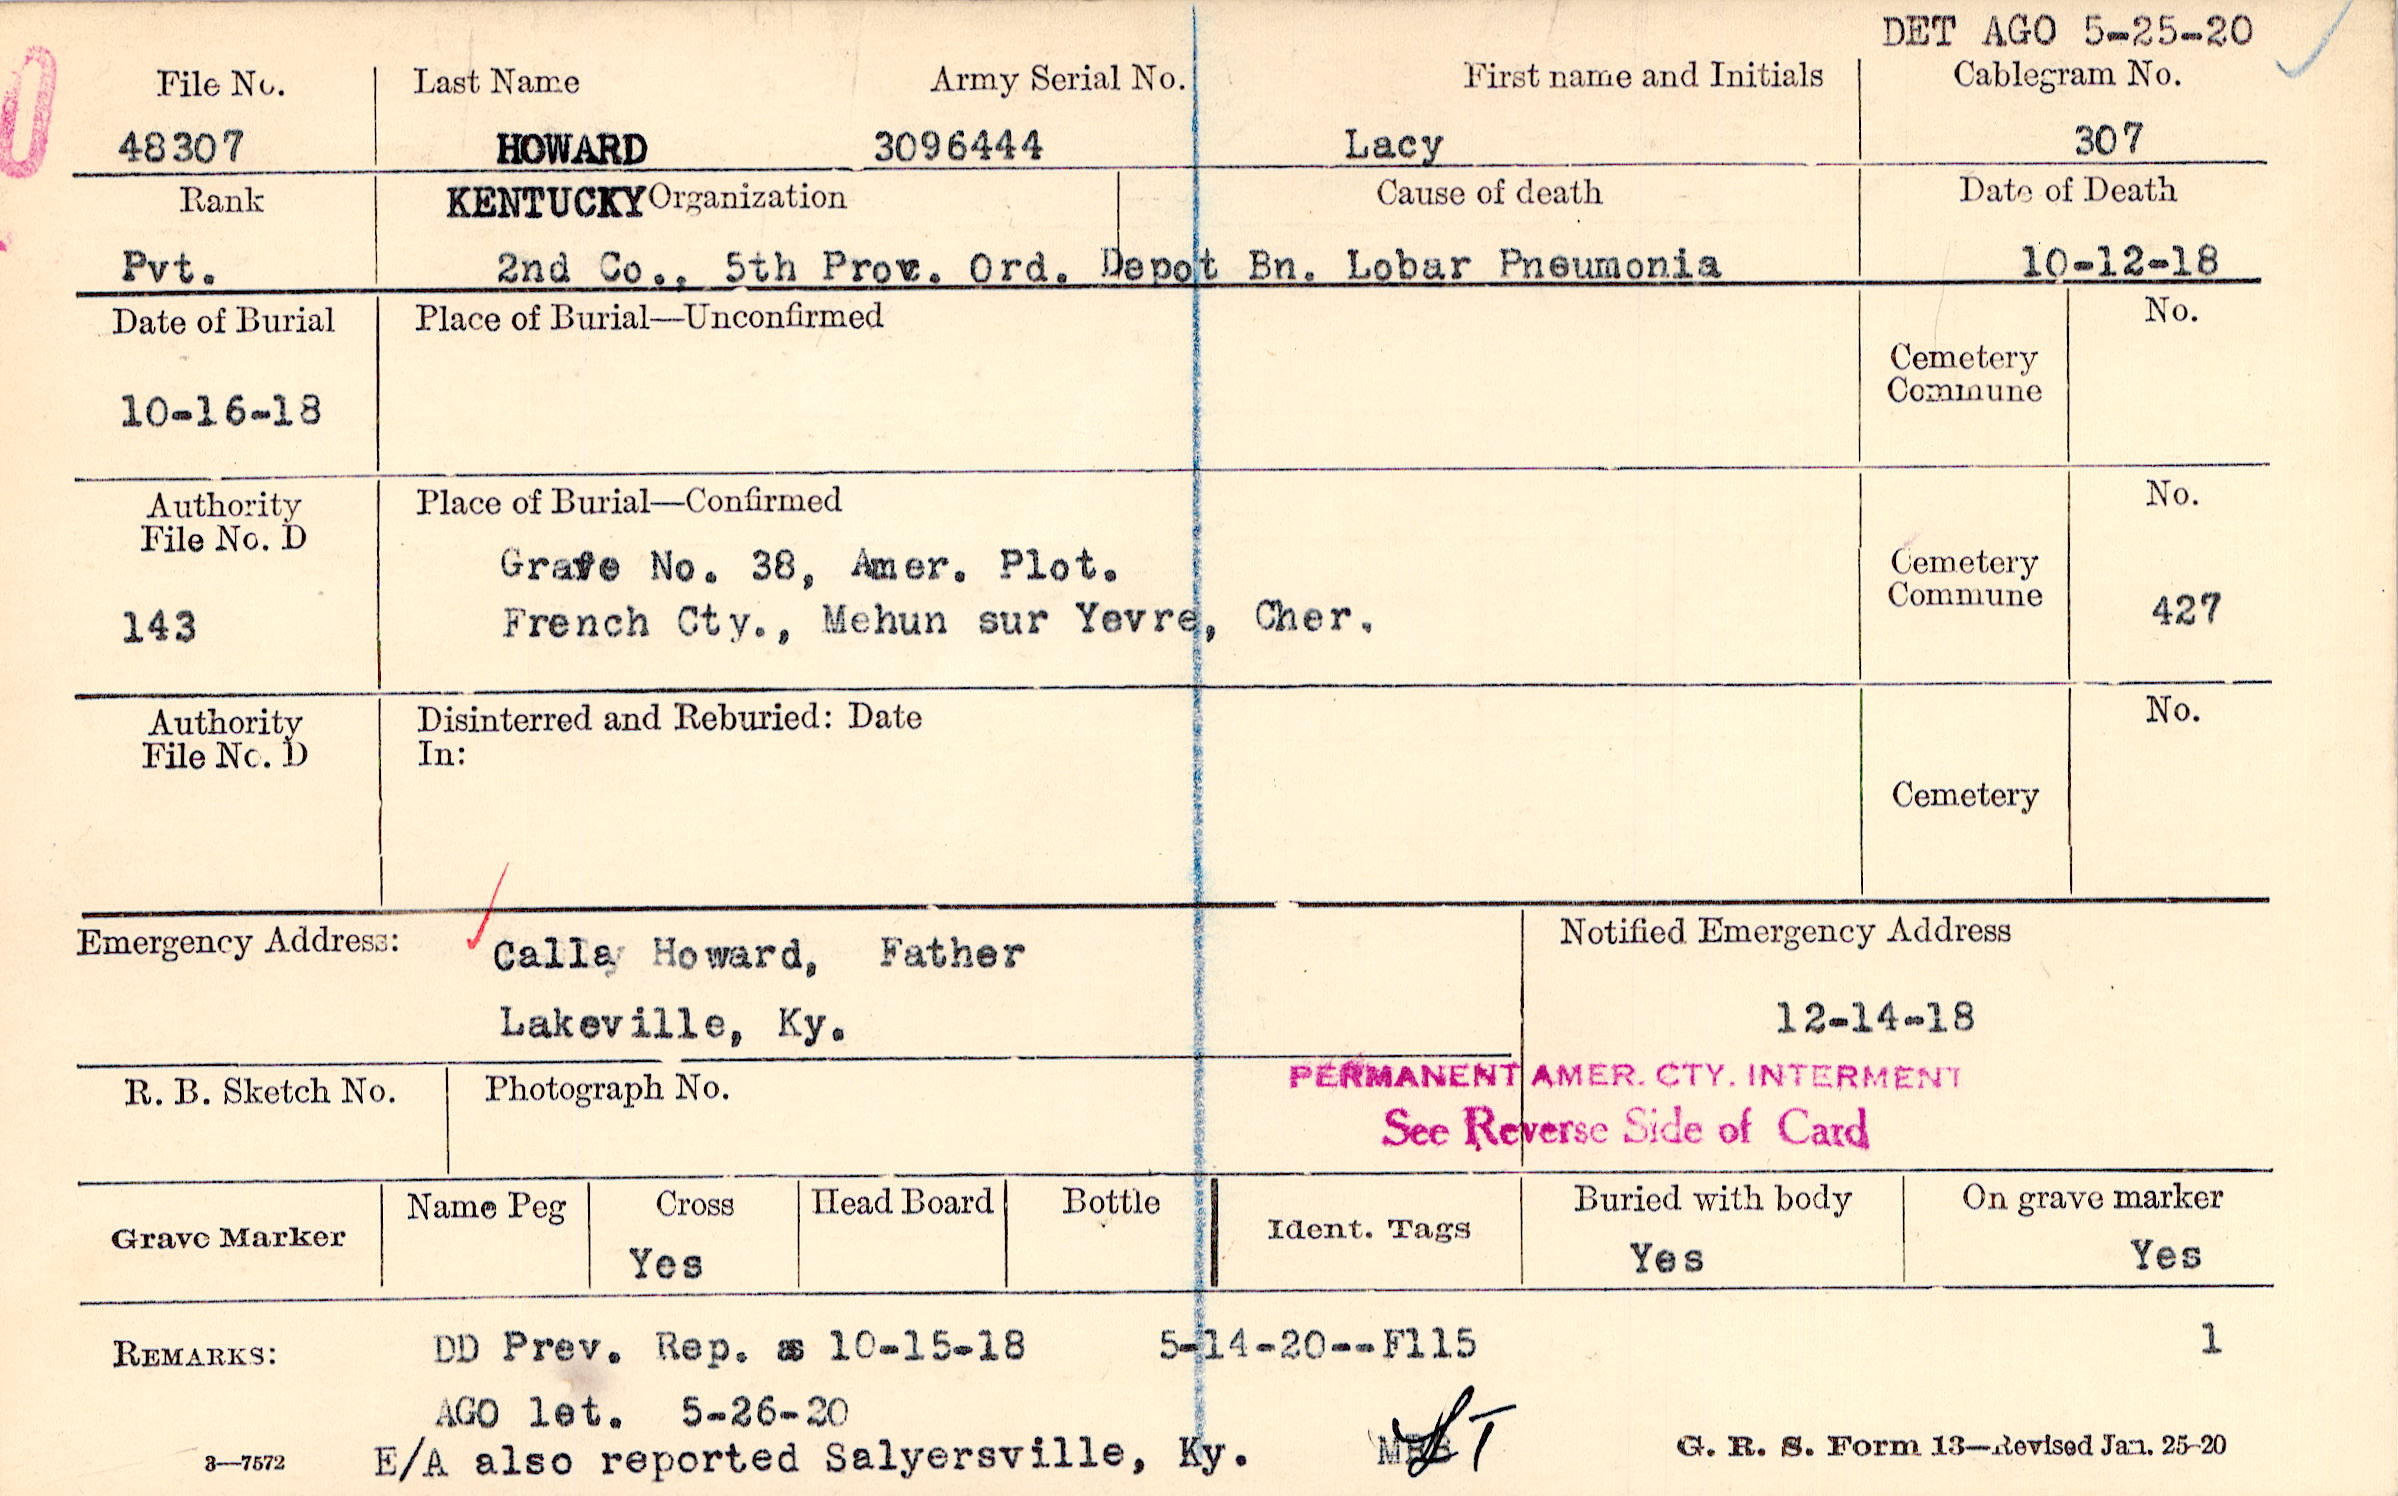 DET AGO 5-25-20
File No. Last Name Army Serial No. First name and Initials Cablegram No.
48307 HOWARD 3096444 Lacy 307
Rank KENTUCKY Organization Cause of death Date of Death
Pvt. 2nd Co., 5th Prov. Ord. Depot Bn. Lobar Pneumonia 10-12-18
Date of Burial Place of Burial—Unconfirmed No.
Cemetery
Commune
10-16-18
Authority Place of Burial—Confirmed No.
File No. D
Grave No. 38, Amer. Plot. Cemetery
Commune
143 French Cty., Mehun sur Yevre, Cher. 427
Authority Disinterred and Reburied: Date No.
File No. D In:
Cemetery
Emergency Address: Calla Howard, Father Notified Emergency Address
Lakeville, Ky. 12-14-18
R. B. Sketch No. Photograph No. PERMANENT AMER. CTY. INTERMENT
See Reverse Side of Card
Grave Marker Name Peg Cross Head Board Bottle Ident. Tags Buried with body On grave marker
Yes Yes Yes
REMARKS: DD Prev. Rep. as 10-15-18 5-14-20--F115 1
AGO let. 5-26-20
3—7572 E/A also reported Salyersville, Ky. G. R. S. Form 13—Revised Jan. 25-20